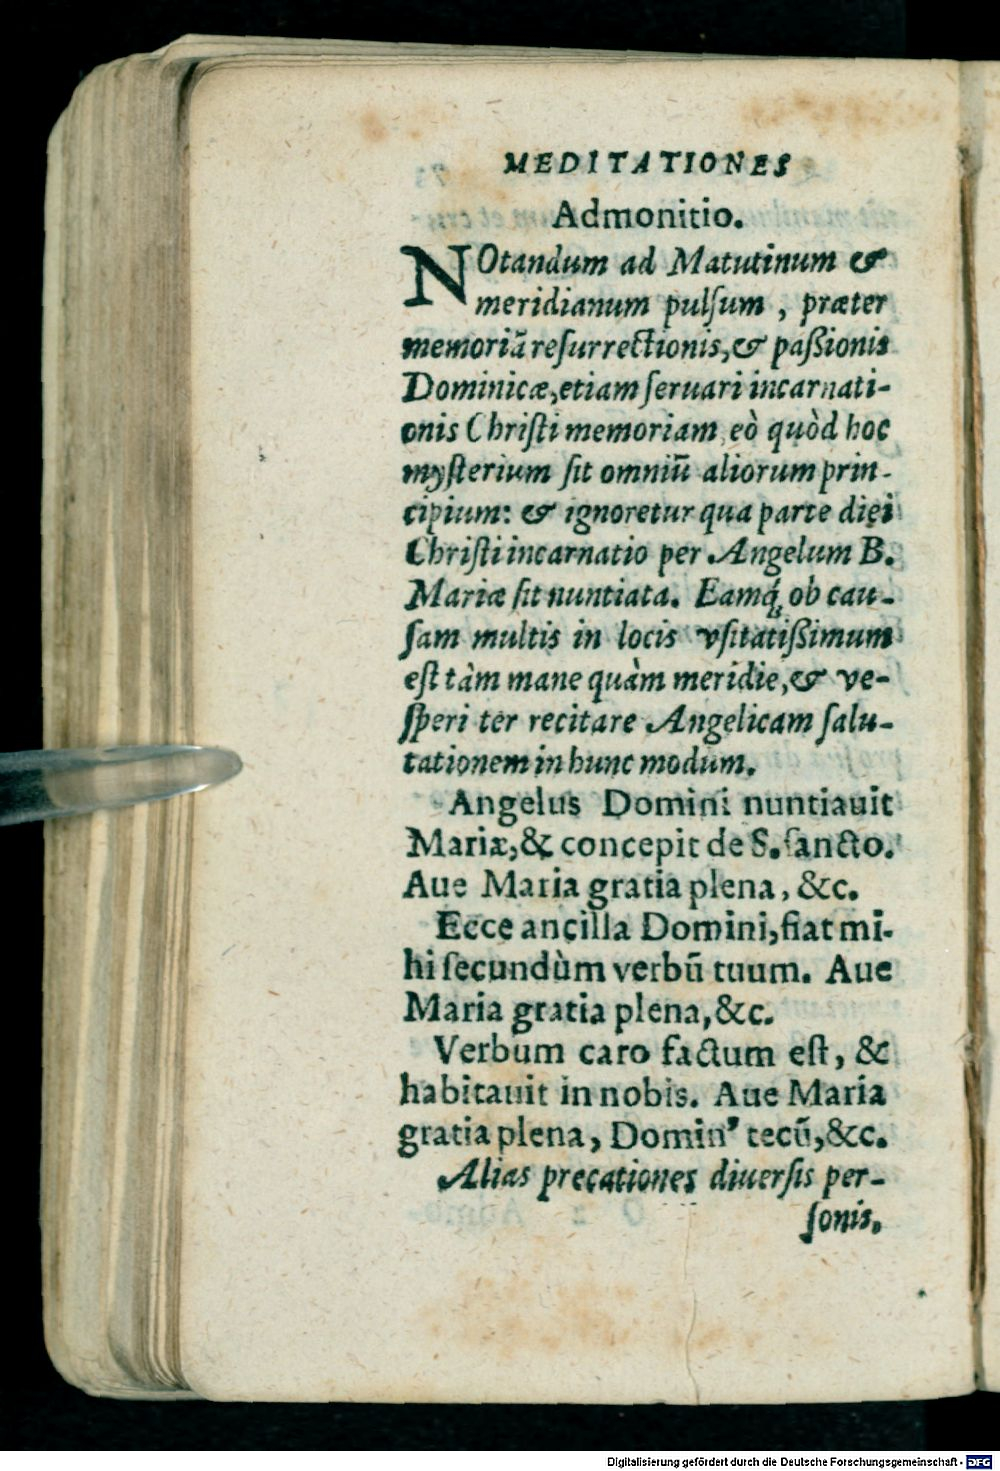 MEDITATIONES
Admonitio.
NOtandum ad Matutinum &
meridianum pulſum , præter
memoriã reſurrectionis,& paßionis
Dominicæ,etiam ſeruari incarnati-
onis Chriſti memoriam eò quòd hoc
myſterium ſit omniũ aliorum prin-
cipium: & ignoretur qua parte diei
Chriſti incarnatio per Angelum B.
Mariæ ſit nuntiata. Eamq́; ob cau-
ſam multis in locis vſitatißimum
eſt tàm mane quàm meridie,& ve-
ſperi ter recitare Angelicam ſalu-
tationem in hunc modum.
Angelus Domini nuntiauit
Mariæ,& concepit de S. ſancto.
Aue Maria gratia plena, &c.
Ecce ancilla Domini,fiat mi-
hi ſecundùm verbũ tuum. Aue
Maria gratia plena,&c.
Verbum caro factum eſt, &
habitauit in nobis. Aue Maria
gratia plena, Domin’ tecũ,&c.
Alias precationes diuerſis per-
ſonis.
Digitalisierung gefördert durch die Deutsche Forschungsgemeinschaft - DFG